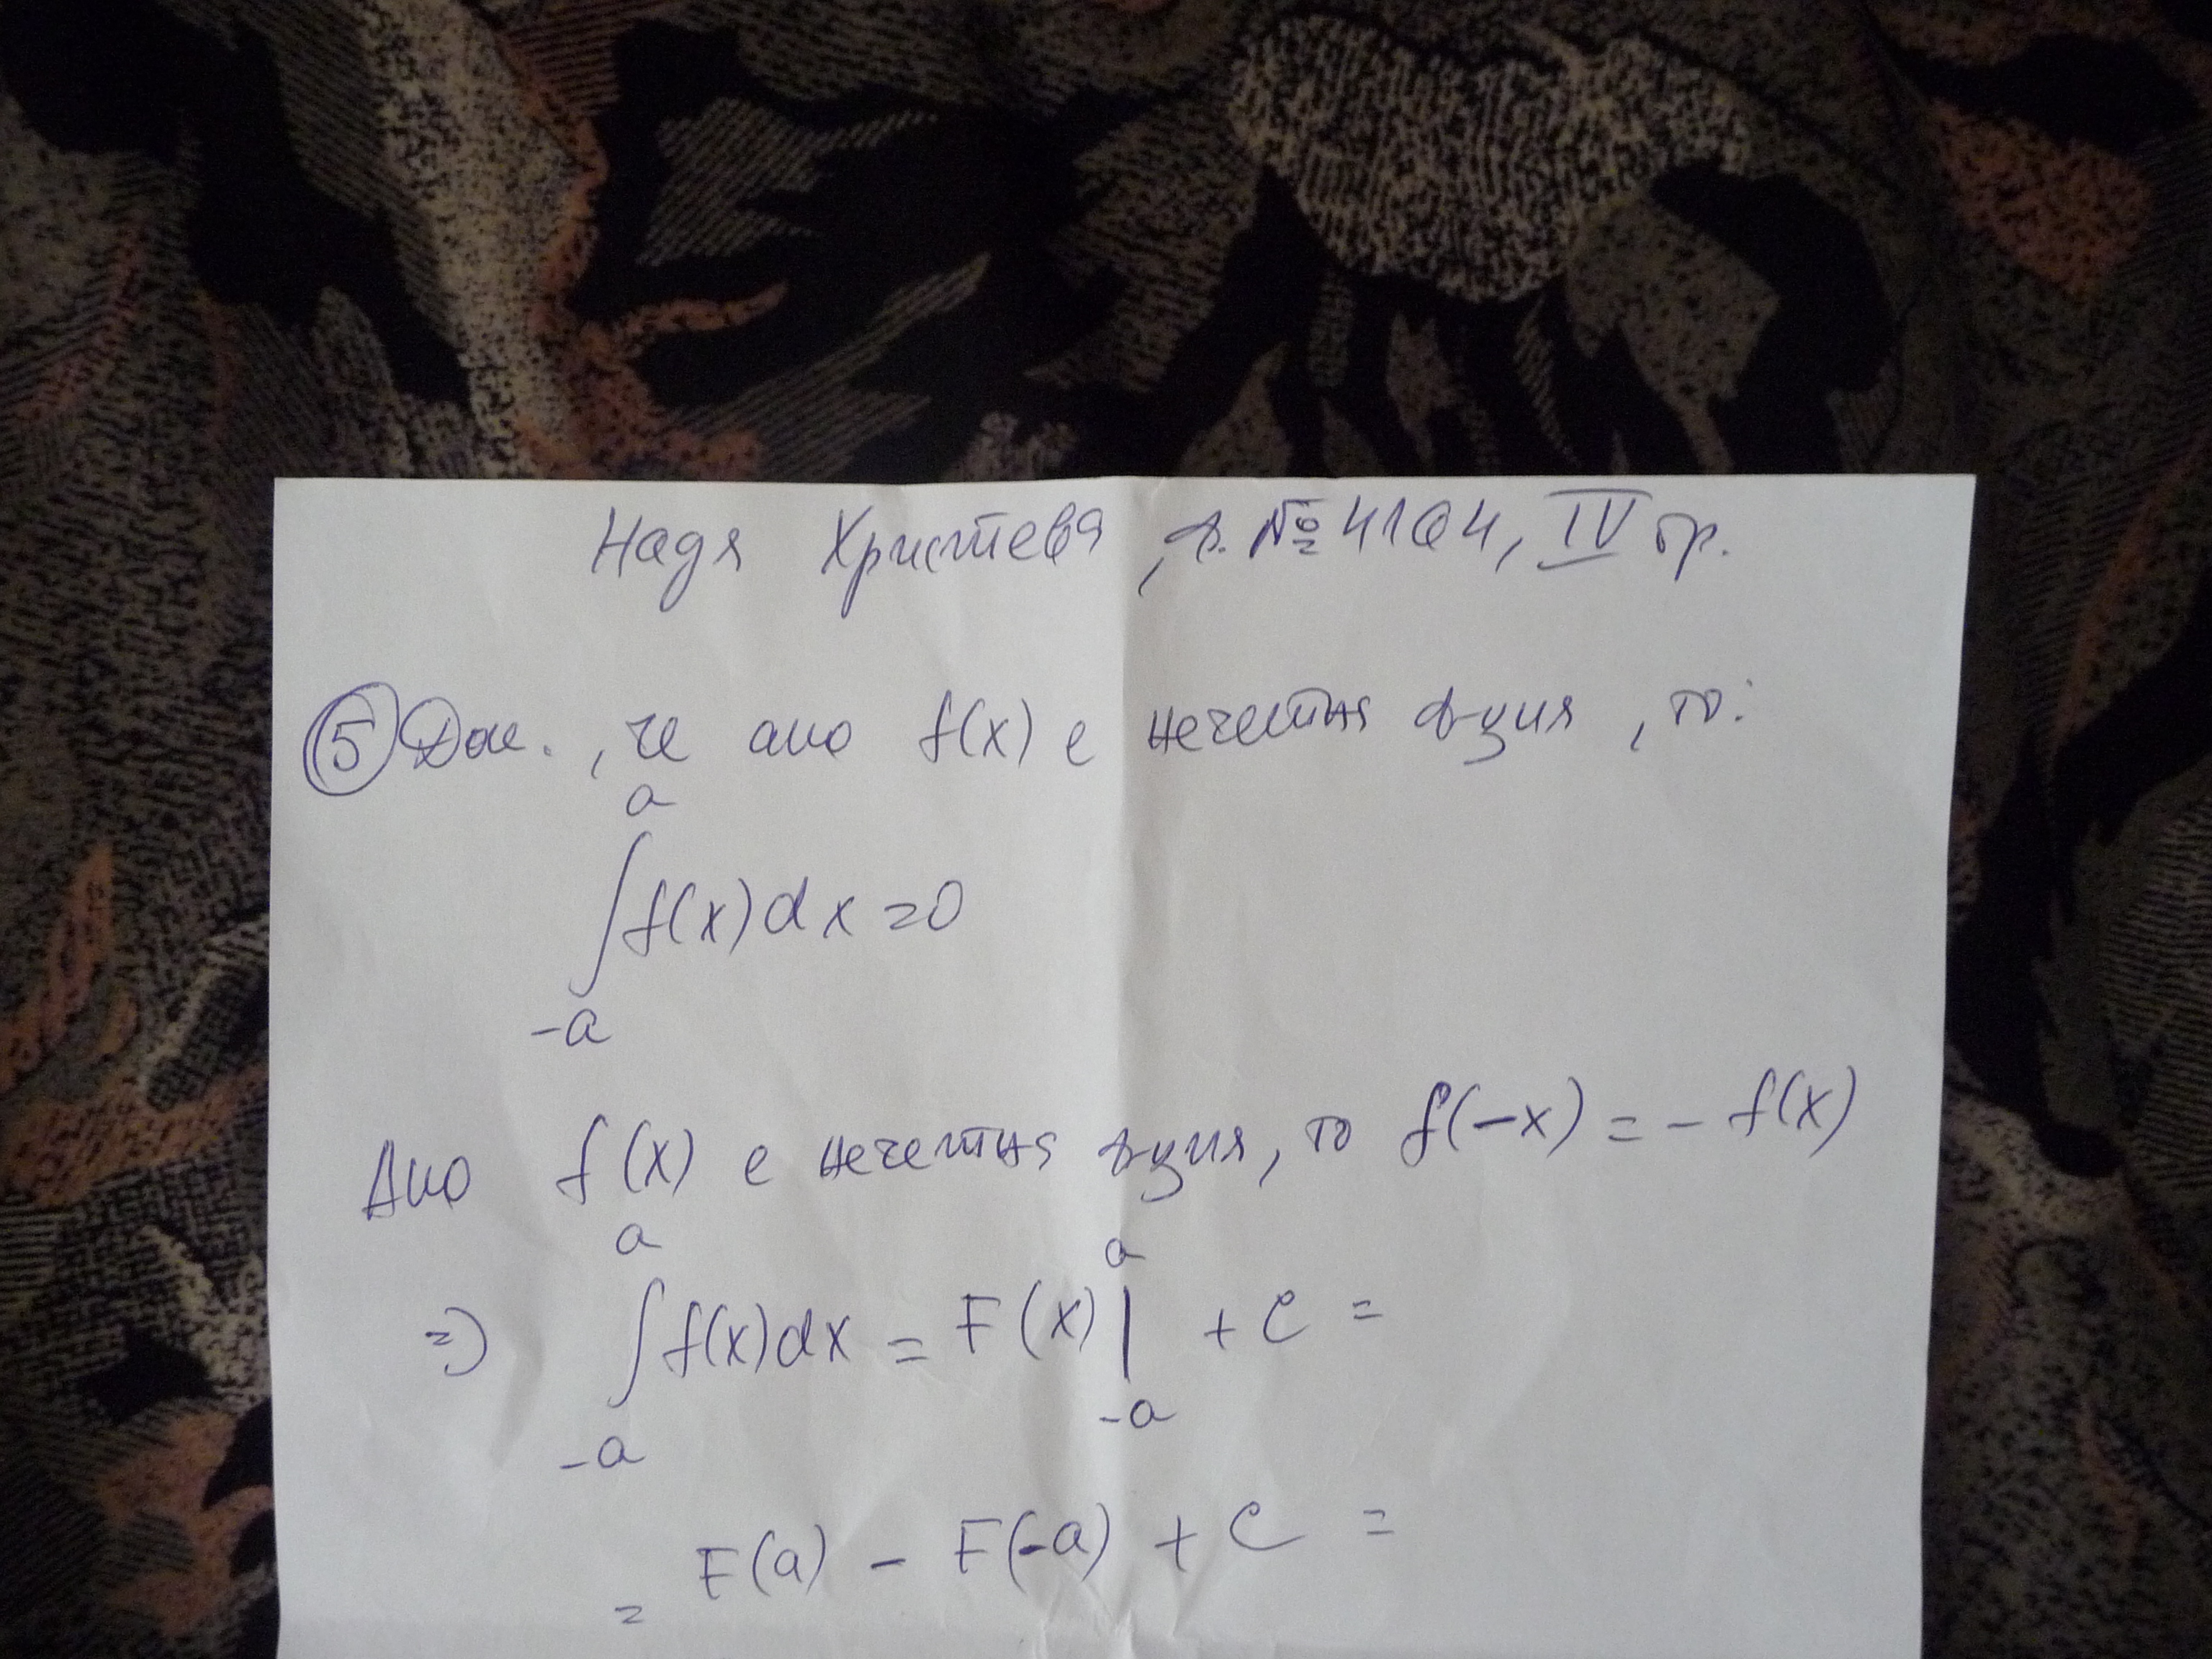 Надя Христева, ф. № 4104, IV гр.
⑤ Док., че ако f(x) е нечетна ф-ция, то:
a
∫f(x)dx=0
-a
Ако f(x) е нечетна ф-ция, то f(-x) = - f(x)
a a
=> ∫f(x)dx = F(x)| + C =
-a -a
= F(a) - F(-a) + C =